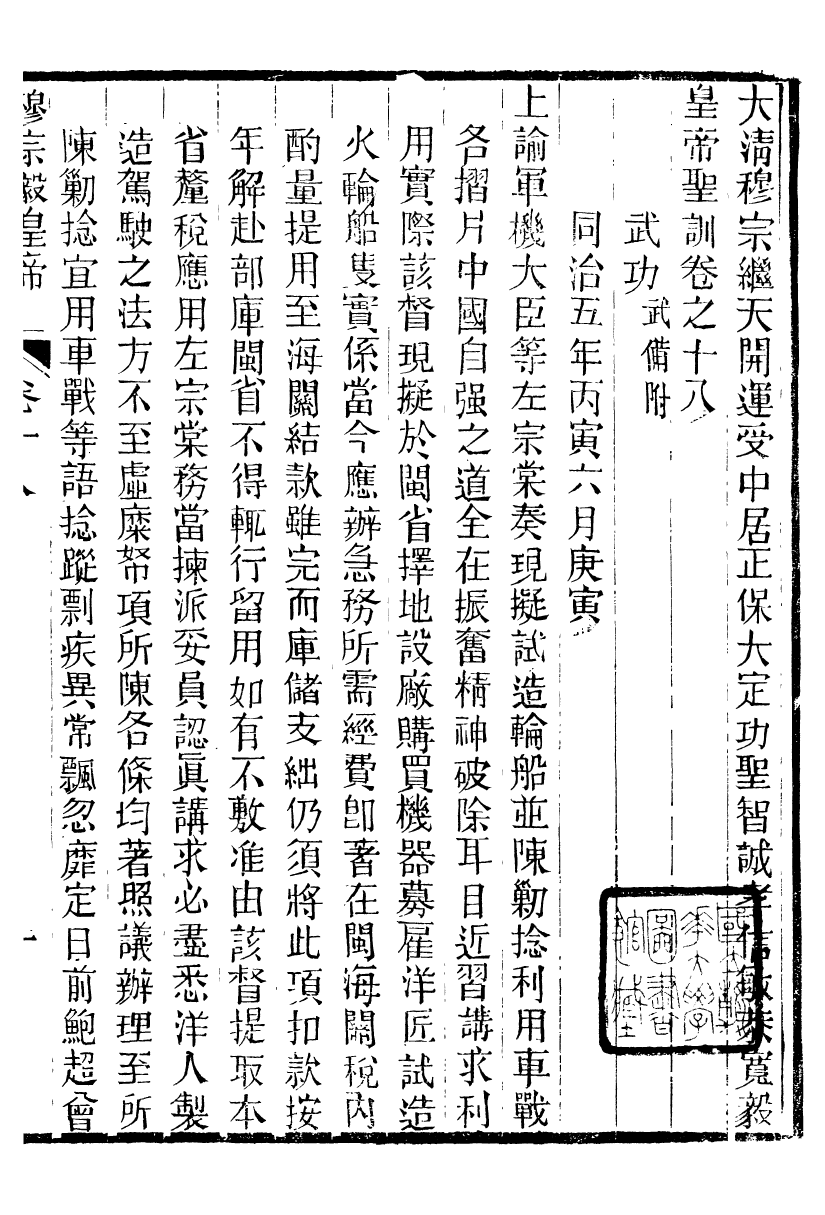 大清穆宗繼天開運受中居正保大定功聖智誠孝信敏恭寬毅
皇帝聖訓卷之十八
武功武備附
同治五年丙寅六月庚寅
上諭軍機大臣等左宗棠奏現擬試造輪船並陳勦捻利用車戰
各摺片中國自强之道全在振奮精神破除耳目近習講求利
用實際該督現擬於閩省擇地設廠購買機器募雇洋匠試造
火輪船隻實係當今應辦急務所需經費卽著在閩海關稅內
酌量提用至海關結款雖完而庫儲支絀仍須將此項扣款按
年解赴部庫閩省不得輒行留用如有不敷准由該督提取本
省釐稅應用左宗棠務當揀派妥員認眞講求必盡悉洋人製
造駕駛之法方不至虛糜帑項所陳各條均著照議辦理至所
陳勦捻宜用車戰等語捻蹤剽疾異常飄忽靡定日前鮑超曾
穆宗毅皇帝 卷十八 一
圖書